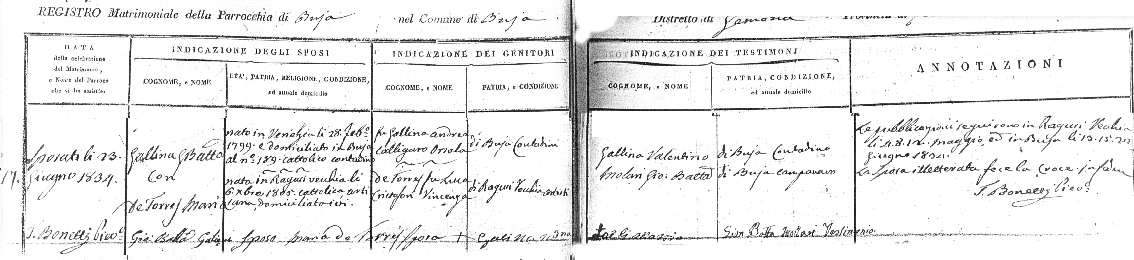 REGISTRO Matrimoniale della Parrocchia di Buja nel Comune di Buja Distretto di Gemona
DATA
della celebrazione
del Matrimonio,
e Nome del Parroco
che vi ha assistito
INDICAZIONE DEGLI SPOSI
COGNOME, e NOME
ETA', PATRIA, RELIGIONE, CONDIZIONE,
ed attuale domicilio
INDICAZIONE DEI GENITORI
COGNOME, e NOME
PATRIA, e CONDIZIONE
INDICAZIONE DEI TESTIMONJ
COGNOME, e NOME
PATRIA, CONDIZIONE,
ed attuale domicilio
ANNOTAZIONI
17.
Sposati li 23
Giugno 1834
Gallina GBatta
Con
de Torrej Maria
nato in li 28 Feb.o
1799 e Domiciliato in Buja
al n.o 189. cattolico contadino
nata in Ragusi vecchia li
6 xbre 1805 cattolica
domiciliata ivi.
fu Gallina Andrea
Calligaro Orsola
de Torrej fu Luca
Vincenza
di Buja Contadini
di Ragusi Vecchia
Gallina Valentino
Molari Gio: Batta
di Buja Contadino
di Buja
Le pubblicazioni seguirono in Ragusi Vecchia
li 4.8.12. Maggio ed in Buja li 13.15.22
Giugno 1834.
La Sposa illetterata fece la Croce
J. Bonetti Vic.o
J. Bonetti Vic.o
Gio Batta Sposo Maria de Torrej Sposa +
Gion Batta Molari Testimonio